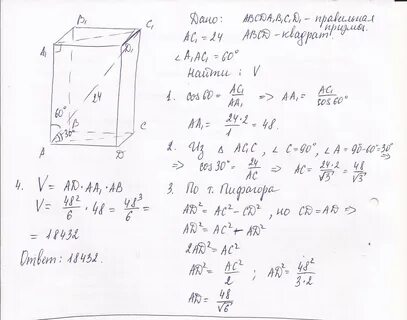 Дано: ABCDA₁B₁C₁D₁ - правильная призма.
AC₁ = 24 ABCD - квадрат
∠A₁AC₁ = 60°
Найти: V
B₁
C₁
A₁
D₁
24
60°
B
30°
C
A
D
1. cos60 = AC₁/AA₁ => AA₁ = AC₁/cos60°
AA₁ = 24·2/1 = 48.
2. Из △ AC₁C, ∠C = 90°, ∠A = 90-60=30°
=> cos30° = 24/AC => AC = 24·2/√3 = 48/√3
3. По т. Пифагора
AD² = AC² - CD², но CD = AD =>
AD² = AC² + AD²
2AD² = AC²
AD² = AC²/2 ; AD² = 48²/3·2
AD = 48/√6
4. V = AD·AA₁·AB
V = 48²/6 · 48 = 48³/6 =
= 18432
Ответ: 18432.